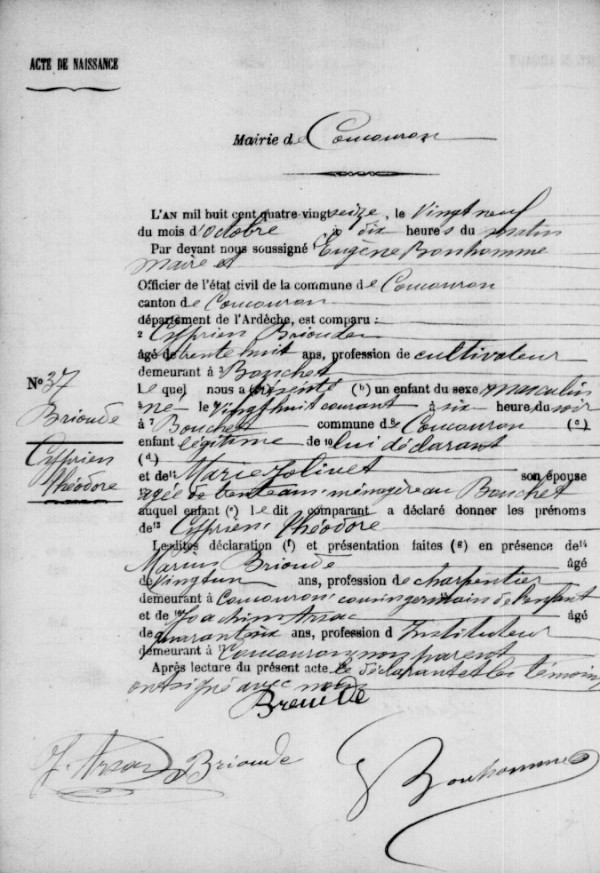 ACTE DE NAISSANCE
Mairie de Coucouron
L'AN mil huit cent quatre-vingt seize, le vingt neuf
du mois d'octobre à dix heures du matin
Par devant nous soussigné Eugène Bonhomme
maire et
Officier de l'état civil de la commune de Coucouron
canton de Coucouron
département de l'Ardèche, est comparu :
2 Cyprien Brioude
âgé de trente huit ans, profession de cultivateur
demeurant à 3 Bouchet
Le quel nous a présenté (b) un enfant du sexe masculin
né le vingt huit courant à six heure du soir
à 7 Bouchet commune de Coucouron (c)
enfant légitime de 10 lui déclarant
(d)
et de 11 Marie Jolivet son épouse
âgée de trente ans ménagère au Bouchet
auquel enfant (e) le dit comparant a déclaré donner les prénoms
de 13 Cyprien Théodore
Lesdites déclaration (f) et présentation faites (g) en présence de 14
Marius Brioude âgé
de vingt un ans, profession de charpentier
demeurant à Coucouron cousin germain de l'enfant
et de 16 Joachim Arzac âgé
de quarante six ans, profession d'Instituteur
demeurant à 17 Coucouron non parent
Après lecture du présent acte le déclarant et les témoins
ont signé avec nous
No 37
Brioude
Cyprien
Théodore
Brioude
J. Arzac Brioude
Bonhomme